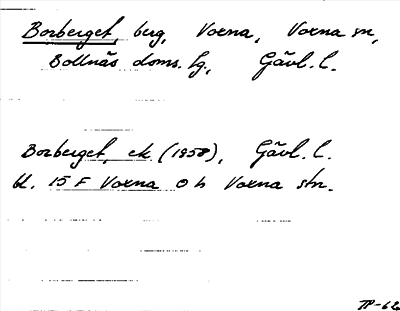 Borberget, berg, Voxna, Voxna sn,
Bollnäs doms. lg., Gävl. l.
Borberget, ek. (1958), Gävl. l.
bl. 15 F Voxna o h Voxna stn.
TP-62